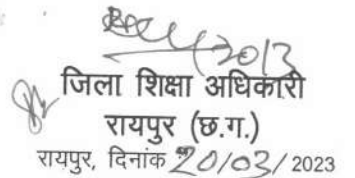 जिला शिक्षा अधिकारी
रायपुर (छ.ग.)
रायपुर, दिनांक 20/03/2023